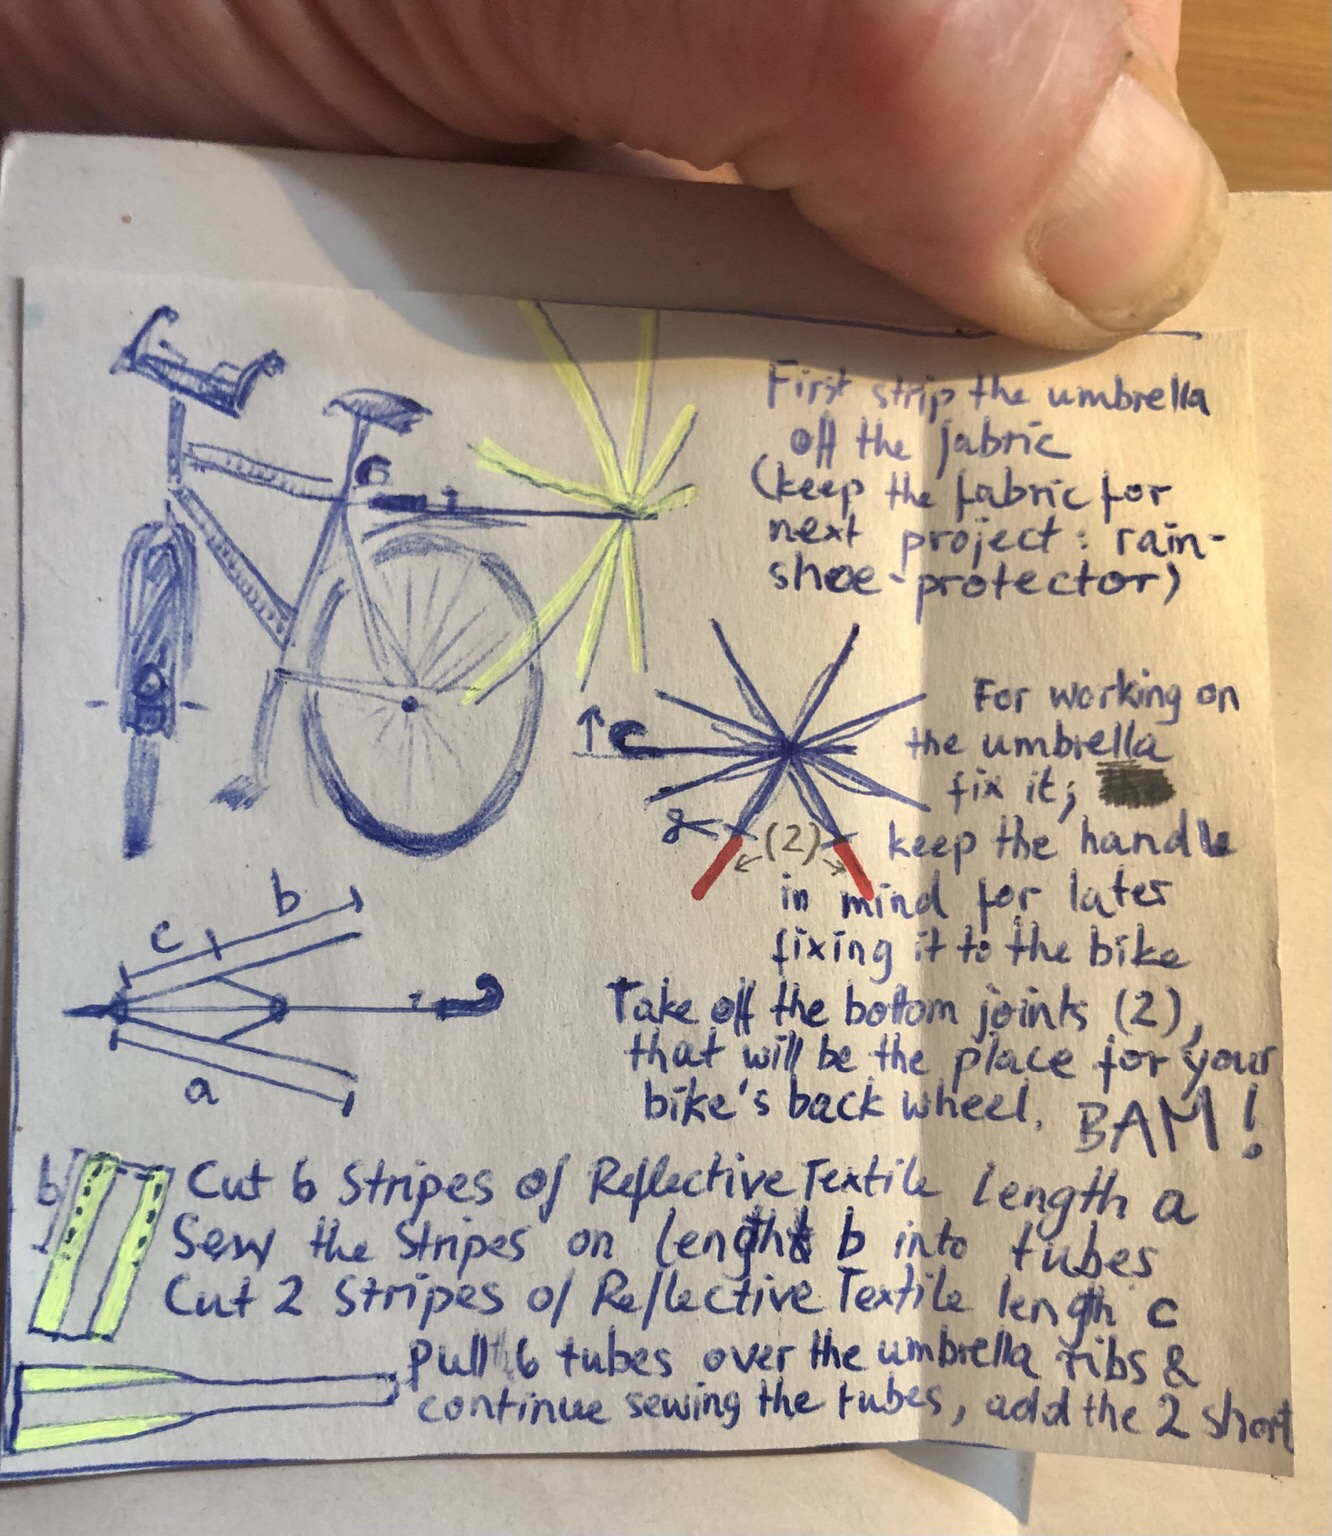 First strip the umbrella
off the fabric
(keep the fabric for
next project: rain-
shoe-protector)
For working on
the umbrella
fix it;
keep the handle
in mind for later
fixing it to the bike
(2)
Take off the bottom joints (2),
that will be the place for your
bike's back wheel. BAM!
b
c
a
b
Cut 6 Stripes of Reflective Textile length a
Sew the Stripes on length b into tubes
Cut 2 Stripes of Reflective Textile length c
Pull 6 tubes over the umbrella ribs &
continue sewing the tubes, add the 2 short